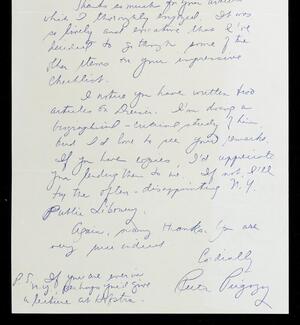 Thanks so much for your article
which I thoroughly enjoyed. It was
so lively and evocative that I've
decided to go through some of the
other items on your impressive
checklist.
I notice you have written two
articles on Dreiser. I'm doing a
biographical-critical study of him
and I'd love to see your remarks.
If you have copies, I'd appreciate
your lending them to me. If not I'll
try the often-disappointing N.Y.
Public Library.
Again, many thanks. You are
very
Cordially
P.S. If you are ever in
N.Y., perhaps you'd give
a lecture at Hofstra.